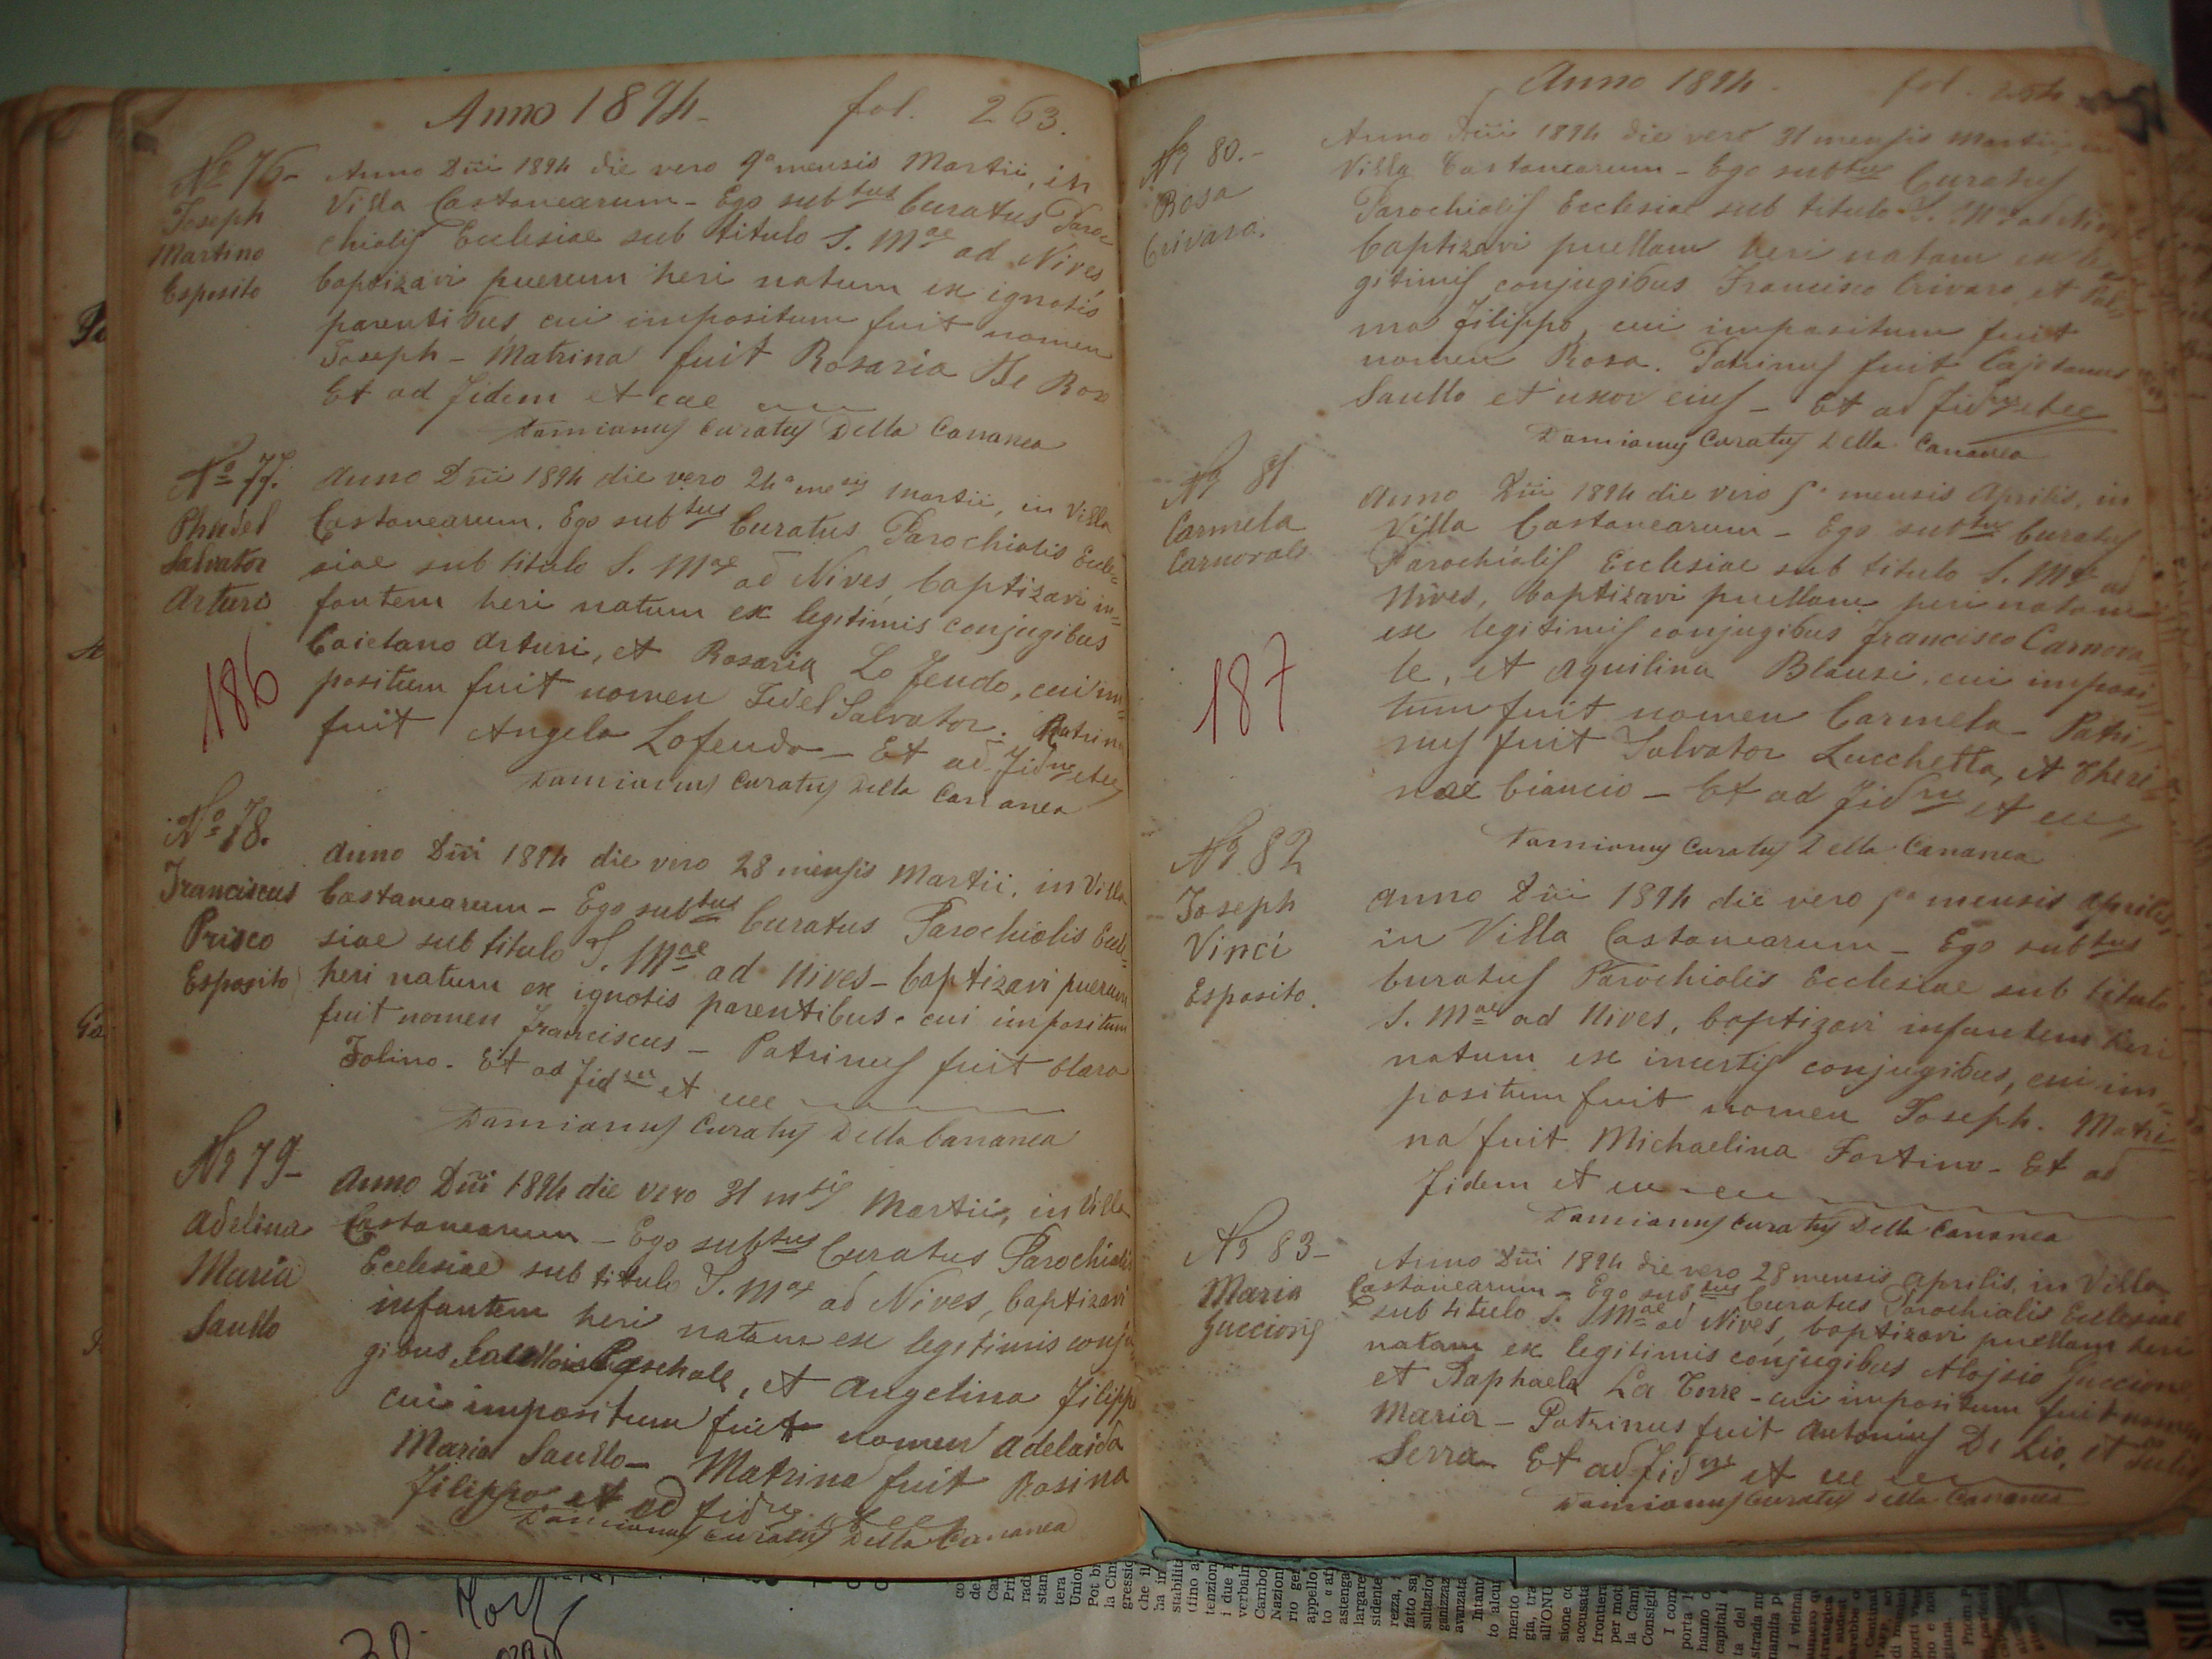 Anno 1894 fol. 263.
No 76
Joseph
Martino
Esposito
Anno Dni 1894 die vero 9a mensis Martii, in
Villa Castanearum - Ego subtus Curatus Paro=
chialis Ecclesiae sub titulo S. Mae ad Nives,
baptizavi puerum heri natum ex ignotis
parentibus, cui impositum fuit nomen
Joseph - Matrina fuit Rosaria De Rox
Et ad fidem et cae
Damianus Curatus Della Cananea
No 77.
Salvator
Arturi
186
Anno Dni 1894 die vero 24a meis Martii, in Villa
Castanearum. Ego subtus Curatus Parochialis Eccle=
siae sub titulo S. Mae ad Nives, baptizavi in=
fantem heri natum ex legitimis conjugibus
Caietano Arturi, et Rosaria Lo Feudo, cui im=
positum fuit nomen Fidel Salvator. Matrina
fuit Angela Lofeudo - Et ad fidm etc
Damianus Curatus Della Cananea
No 78.
Franciscus
Prisco
Esposito
Anno Dni 1894 die vero 28 mensis Martii, in Villa
Castanearum - Ego subtus Curatus Parochialis Eccle=
siae sub titulo S. Mae ad Nives - baptizavi puerum
heri natum ex ignotis parentibus. cui impositum
fuit nomen Franciscus - Patrinus fuit Clara
Folino. Et ad fidem et cae
Damianus Curatus Della Cananea
No 79-
Adelina
Maria
Saullo
Anno Dni 1894 die vero 31 msis Martii, in Villa
Castanearum - Ego subtus Curatus Parochialis
Ecclesiae sub titulo S. Mae ad Nives, baptizavi
infantem heri natam ex legitimis conju=
gibus Paschale, et Angelina Filippo
cui impositum fuit nomen Adelaida
Maria Saullo - Matrina fuit Rosina
Filippo, et ad fidem
Damianus Curatus Della Cananea
Anno 1894. fol.
No 80.-
Rosa
Crivaro.
Anno Dni 1894 die vero 31 mensis Martii in
Villa Castanearum - Ego subtus Curatus
Parochialis Ecclesiae sub titulo S. Mae ad Nives
baptizavi puellam heri natam ex le
gitimis conjugibus Francisco Crivaro, et Pal
ma Filippo, cui impositum fuit
nomen Rosa. Patrinus fuit Cajetanus
Saullo et uxor eius - Et ad fidem etc
Damianus Curatus Della Cananea
No 81
Carmela
Carnovale
187
Anno Dni 1894 die vero mensis Aprilis, in
Villa Castanearum - Ego subtus Curatus
Parochialis Ecclesiae sub titulo S. Mae ad
Nives, baptizavi puellam heri natam
ex legitimis conjugibus Francisco Carnova=
le, et Aquilina Blausi, cui imposi=
tum fuit nomen Carmela - Patri=
nus fuit Salvator Lucchetta, et
Ciancio - Et ad fidm et
Damianus Curatus Della Cananea
No 82
Joseph
Vinci
Esposito.
Anno Dni 1894 die vero mensis Aprilis,
in Villa Castanearum - Ego subtus
Curatus Parochialis Ecclesiae sub titulo
S. Mae ad Nives, baptizavi infantem heri
natum ex incertis conjugibus, cui im=
positum fuit nomen Joseph. Matri=
na fuit Michaelina Fortino - Et ad
fidem et
Damianus Curatus Della Cananea
No 83-
Maria
Guccione
Anno Dni 1894 die vero 28 mensis Aprilis, in Villa
Castanearum - Ego subtus Curatus Parochialis Ecclesiae
sub titulo S. Mae ad Nives, baptizavi puellam heri
natam ex legitimis conjugibus Alojsio Guccione
et Raphaela La Torre - cui impositum fuit nomen
Maria - Patrinus fuit Antonius De Lio, et
Serra - Et ad fidm et
Damianus Curatus Della Cananea